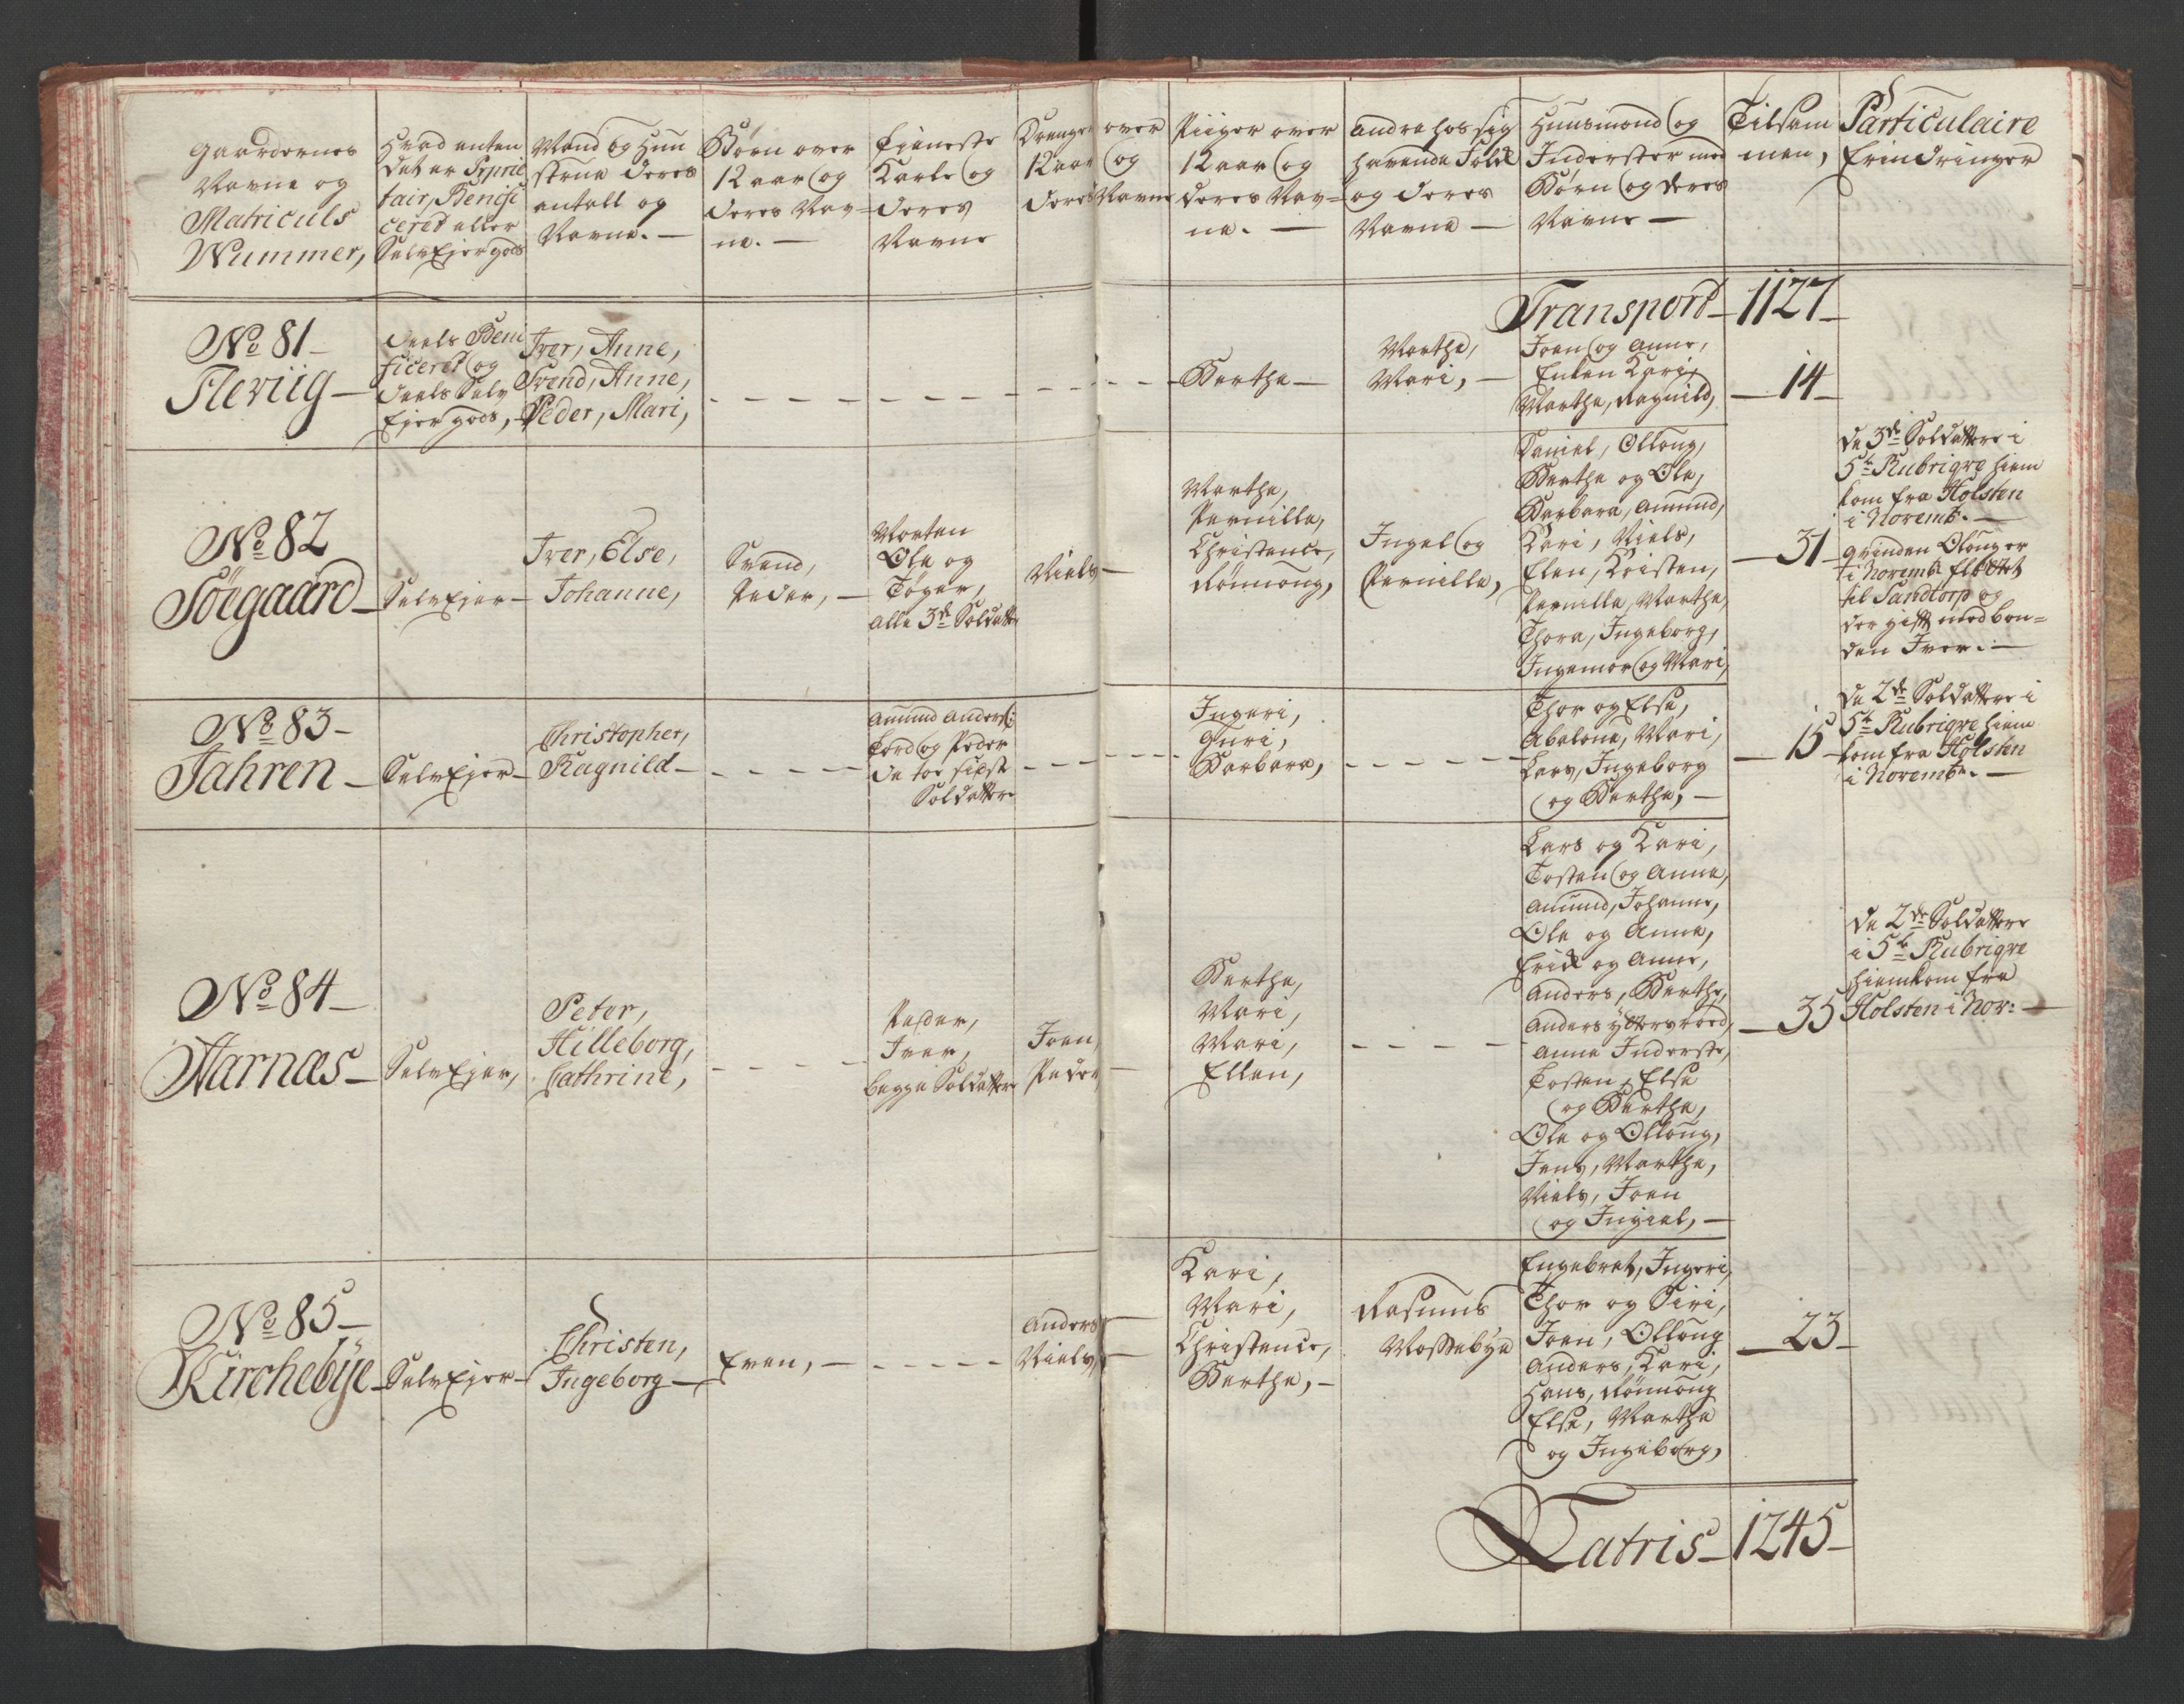 Gaardernes
Navne og
Matriculs
Nummer,
Hvad enten
Det er Proprie
tair, Benefi
cered eller
SelvEjergods
Mand og Huu
strue deres
antall og
Navne. —
Børn over
12 aar og
deres Nav=
ne. —
Tieneste
Karle og
deres
Navne
Drenge over
12 aar og
deres Navne
Piiger over
12 aar og
deres Nav=
ne. —
Andre hos sig
havende Folk
og deres
Navne —
Huusmænd og
Inderster med
Børn og deres
Navne —
Tilsam
men,
Particulaire
Erindringer
Transport — 1127 —
No 81 —
Fleviig —
deels Beni
ficeret og
deels Selv
Ejer gods, —
Iver, Anne,
Svend, Anne,
Peder, Mari,
Berthe —
Marthe,
Mari, —
Joen og Anne,
Enken Kari,
Marthe, Ragnild,
— 14 —
No 82
Söegaard —
SelvEjer —
Iver, Else,
Johanne,
Svend,
Peder, —
Morten
Ole og
Töger,
alle 3de Soldatter
Niels —
Marthe,
Pernille,
Christence,
Rönnoug,
Ingel og
Pernille,
Daniel, Olloug,
Berthe og Ole,
Barbara, Amund,
Kari, Niels,
Elen, Kristen,
Pernille, Marthe,
Thora, Ingeborg,
Ingemor og Mari,
— 31 —
De 3de Soldattere i
5te Rubriqve hiem
kom fra Holsten
i Novemb. —
Qvinden Oloug er
i Novemb. flöttet
til Sandtorp og
der gift med bon=
den Iver. —
No 83 —
Jahren —
SelvEjer —
Christopher,
Ragnild —
Amund Anders:
Tord og Peder
de toe sidste
Soldatter
Ingeri,
Guri,
Barbara,
Thor og Else,
Abelone, Mari,
Lars, Ingeborg
og Berthe, —
— 15 —
De 2de Soldattere i
5te Rubriqve hiem
kom fra Holsten
i Novembr. —
No 84 —
Aarnæs —
SelvEjer,
Peter,
Hilleborg,
Cathrine,
Peder,
Iver,
begge Soldattere
Joen,
Peder —
Berthe,
Mari,
Mari,
Ellen,
Lars og Kari,
Tosten og Anne,
Amund, Johanne,
Ole og Anne,
Erick og Anne,
Anders, Berthe,
Anders Ytterröed,
Anne Inderste,
Tosten, Else
og Berthe,
Ole og Olloug,
Jens, Marthe,
Niels, Joen
og Ingiel, —
— 35
De 2de Soldattere
i 5te Rubriqve
hiemkom fra
Holsten i Nov: —
No 85 —
Kirchebÿe —
SelvEjer —
Christen,
Ingeborg —
Even, —
Anders
Niels, —
Kari,
Mari,
Christence,
Berthe, —
Rasmus
Mossebye
Engebret, Ingeri,
Thor og Siri,
Joen, Olloug
Anders, Kari,
Hans, Rönnoug
Else, Marthe
og Ingeborg,
— 23 —
Latris — 1245 —